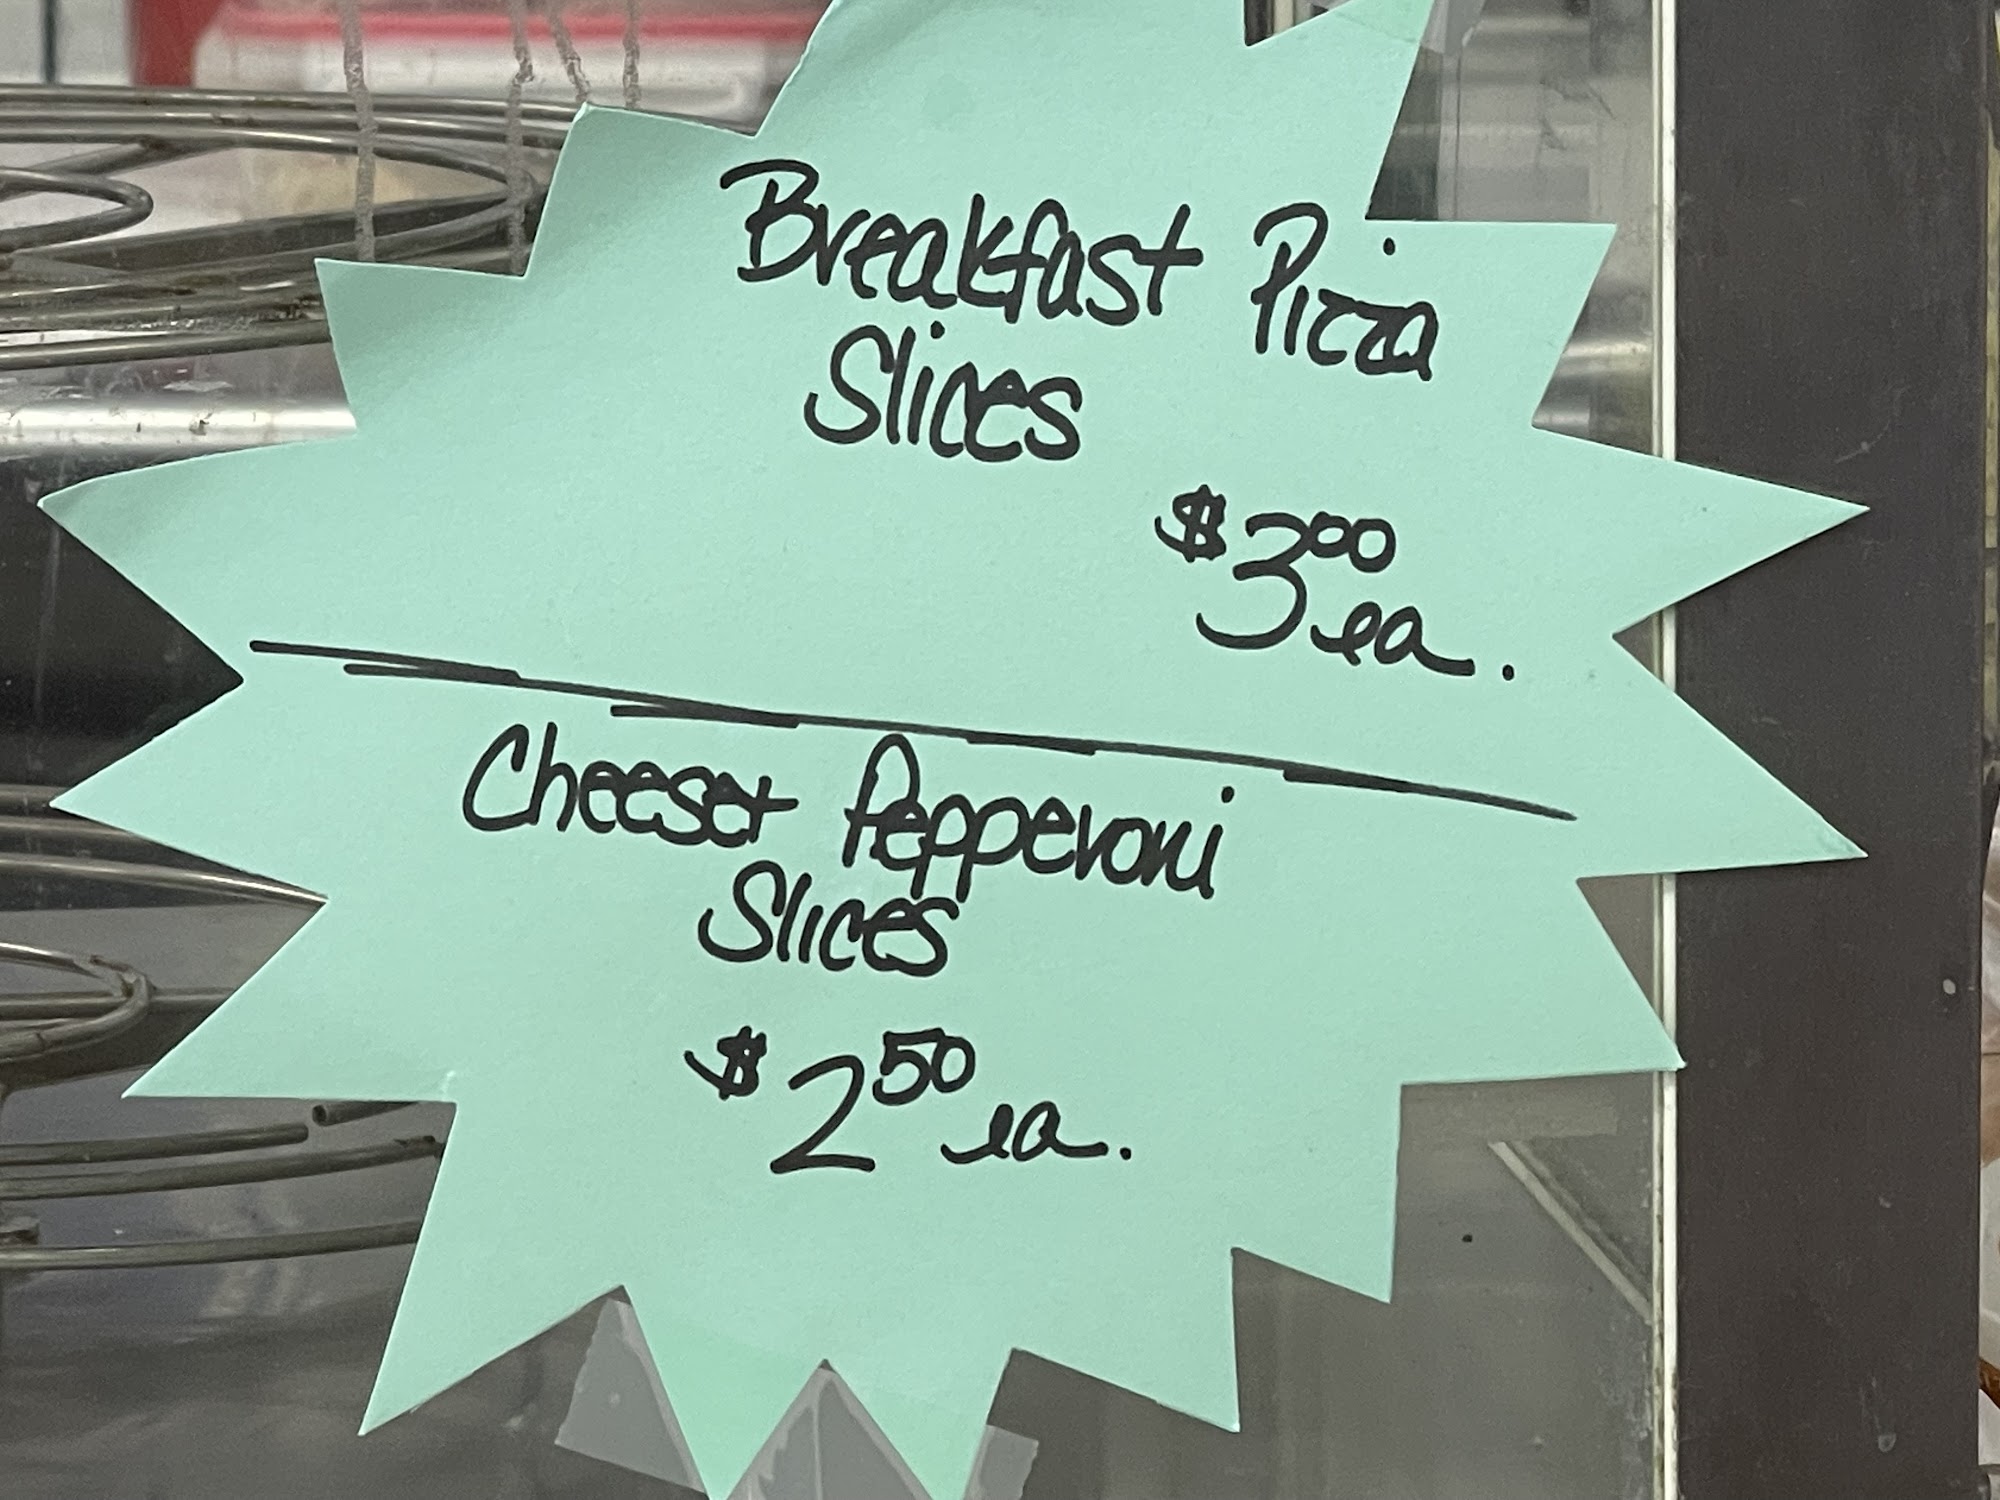 Breakfast Pizza
Slices
$3.00 ea.
Cheese + Pepperoni
Slices
$2.50 ea.